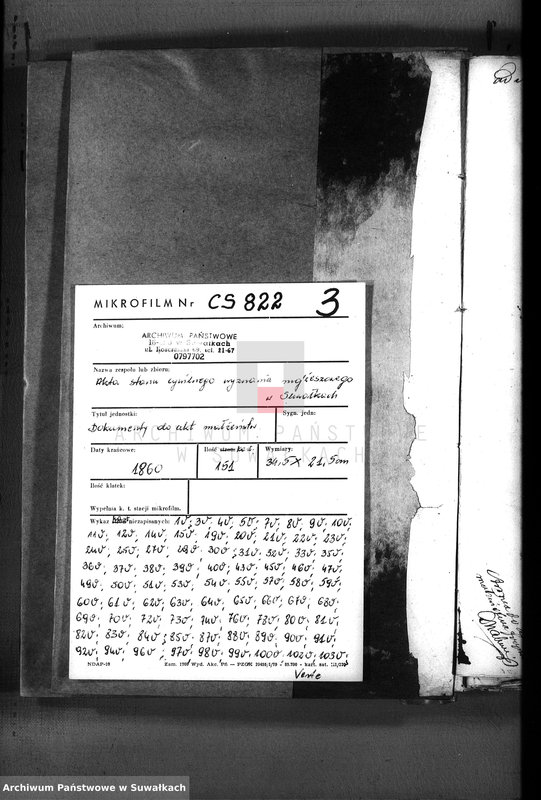 MIKROFILM Nr CS 822 3
Archiwum:
ARCHIWUM PAŃSTWOWE
w Suwałkach
ul. Kościuszki 69, tel. 21-67
0797702
Nazwa zespołu lub zbioru:
Akta stanu cywilnego wyznania mojżeszowego
w Suwałkach
Tytuł jednostki:
Sygn. jedn:
Dokumenty do akt małżeństw
ARCHIWUM PAŃSTWOWE
W SUWAŁKACH
Daty krańcowe:
1860
Ilość
151
Wymiary:
34,5 X 21,5 cm
Ilość klatek:
Wypełnia k. t. stacji mikrofilm.
Wykaz niezapisanych: 1v, 3v, 4v, 5v, 7v, 8v, 9v, 10v,
11v, 12v, 14v, 15v, 19v, 20v, 21v, 22v, 23v,
24v, 25v, 27v, 28v, 30v, 31v, 32v, 33v, 35v,
36v, 37v, 38v, 39v, 40v, 43v, 45v, 46v, 47v,
49v, 50v, 51v, 53v, 54v, 55v, 57v, 58v, 59v,
60v, 61v, 62v, 63v, 64v, 65v, 66v, 67v, 68v,
69v, 70v, 72v, 73v, 74v, 76v, 78v, 80v, 81v,
82v, 83v, 84v, 85v, 87v, 88v, 89v, 90v, 91v,
92v, 94v, 96v, 97v, 98v, 99v, 100v, 102v, 103v,
NDAP-98
Verte
Archiwum Państwowe w Suwałkach